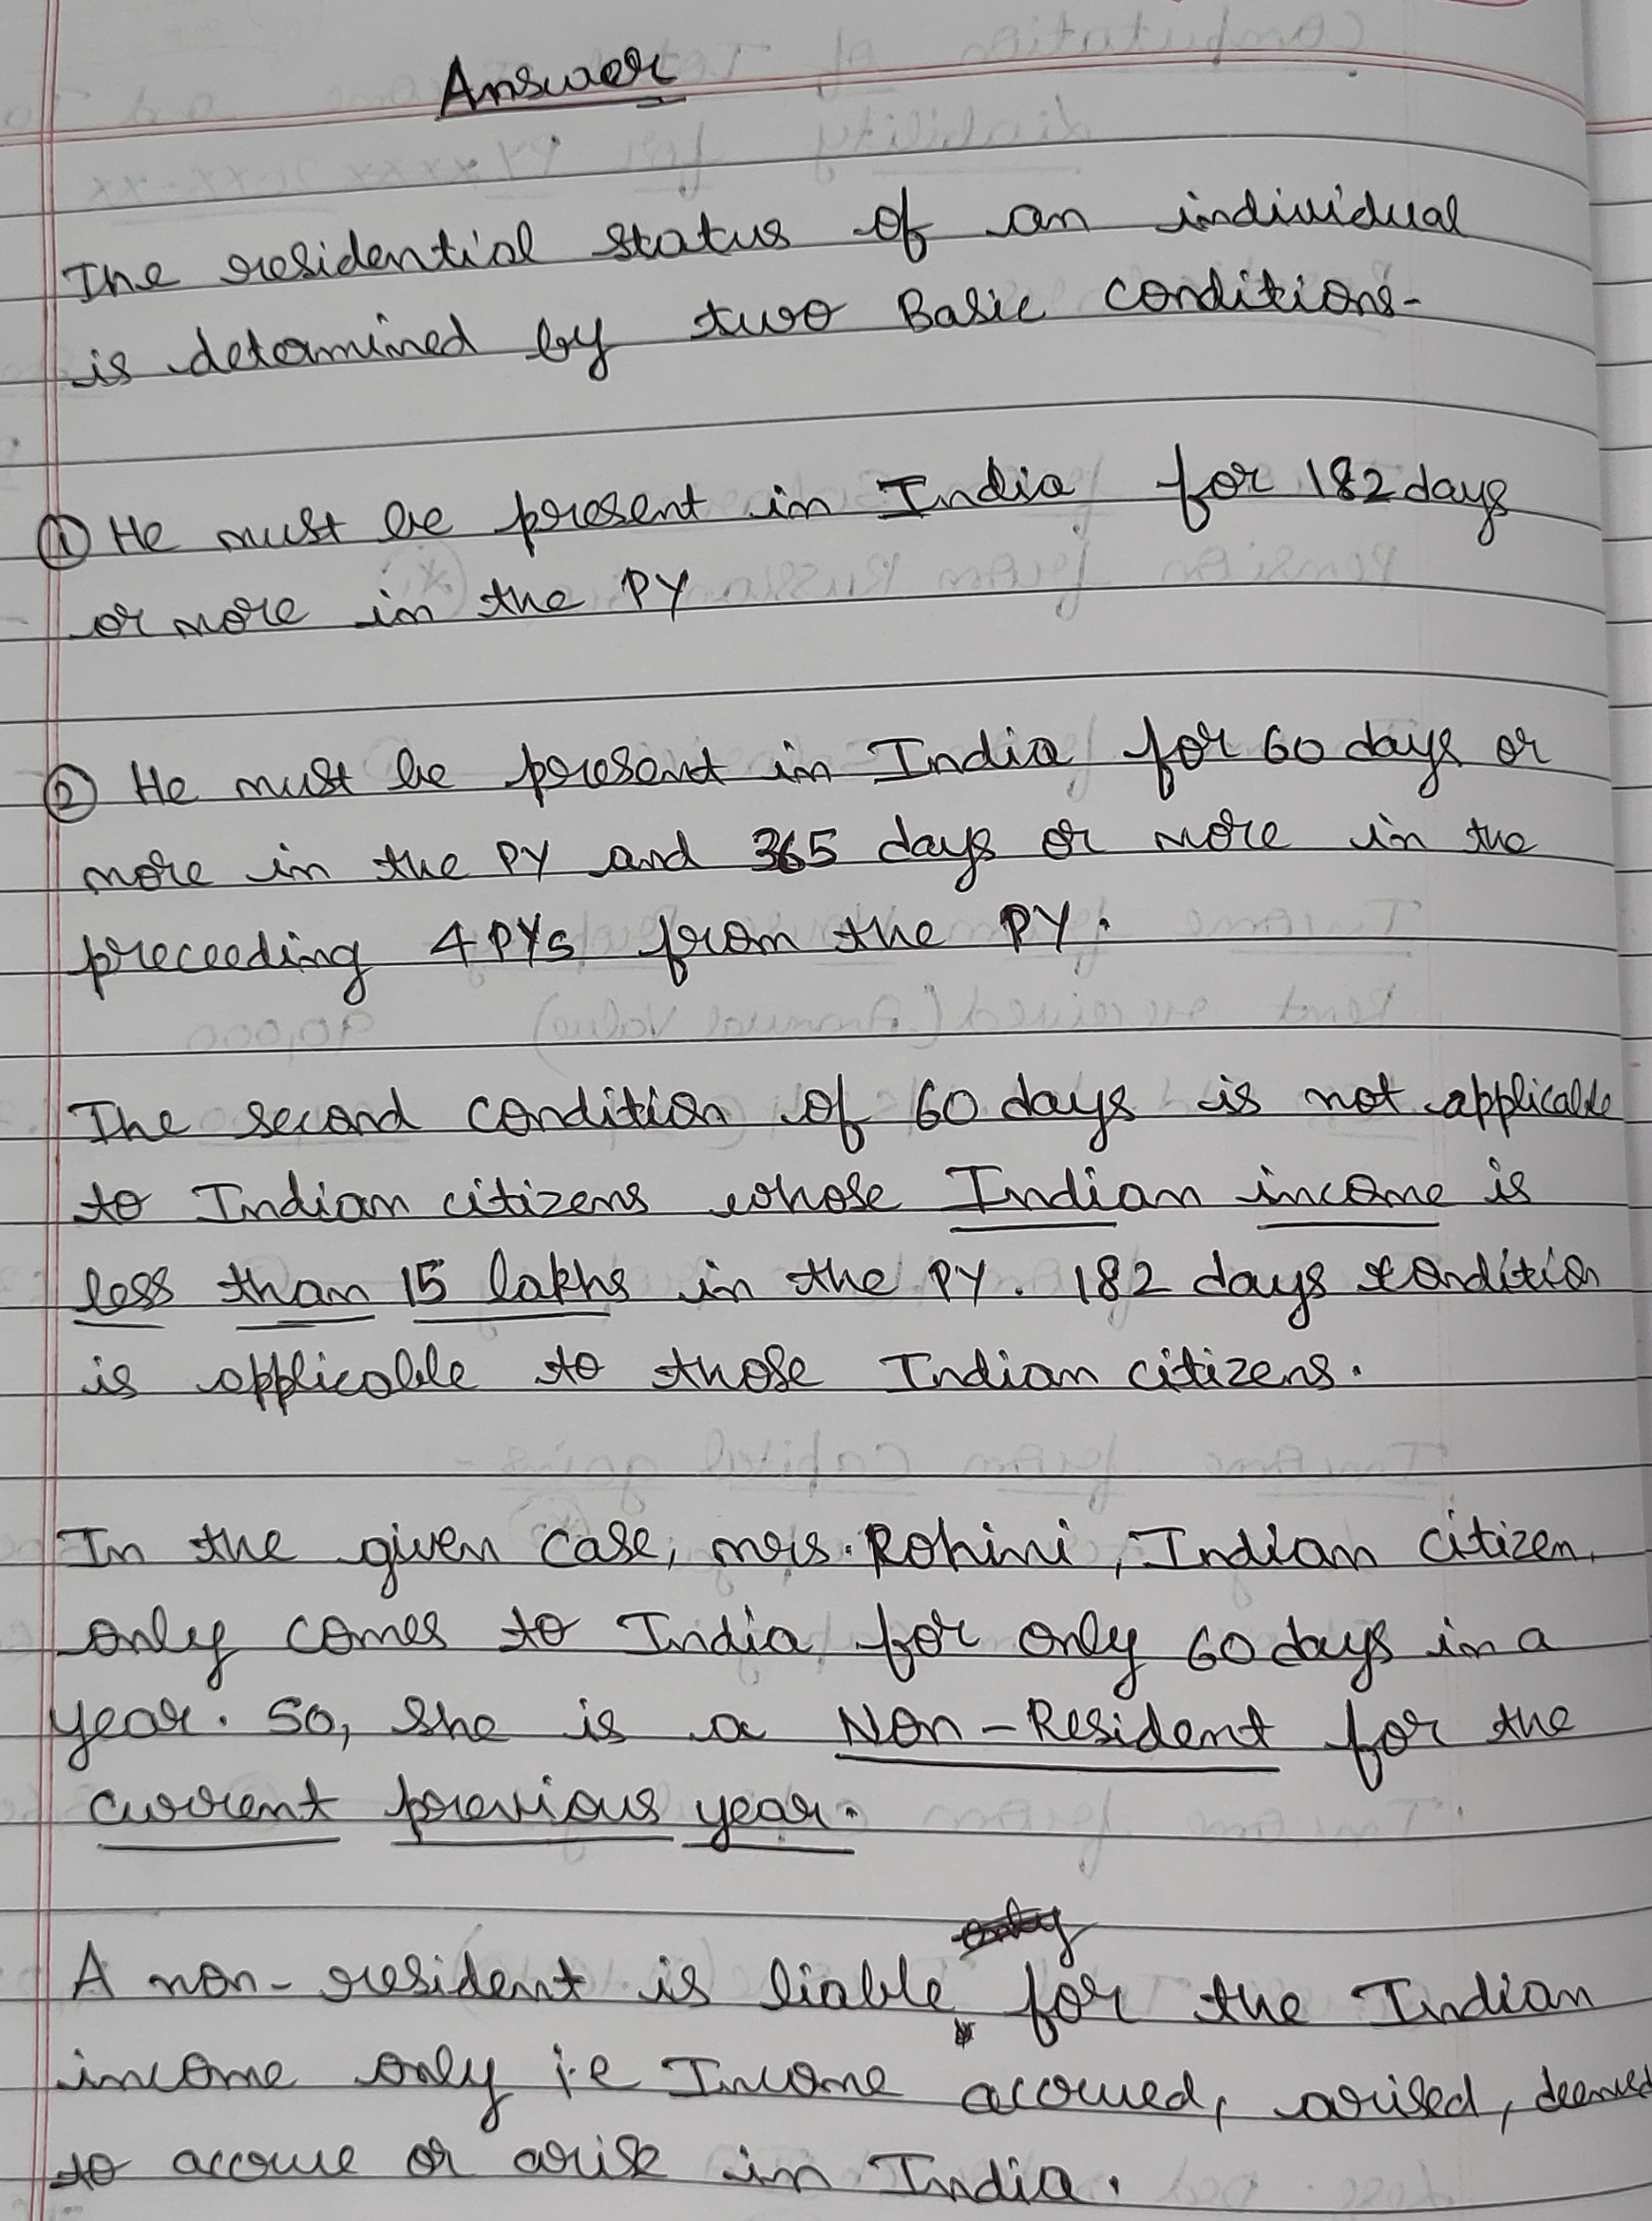 Answer
The residential status of an individual
is determined by two Basic conditions-
① He must be present in India for 182 days
or more in the PY
② He must be present in India for 60 days or
more in the PY and 365 days or more in the
preceeding 4 PYs from the PY.
The second condition of 60 days is not applicable
to Indian citizens whose Indian income is
less than 15 lakhs in the PY. 182 days condition
is applicable to those Indian citizens.
In the given case, mrs. Rohini, Indian citizen,
only comes to India for only 60 days in a
year. So, she is a Non-Resident for the
current previous year.
only
A non-resident is liable for the Indian
income only i.e Income accrued, arised, deemed
to accrue or arise in India.